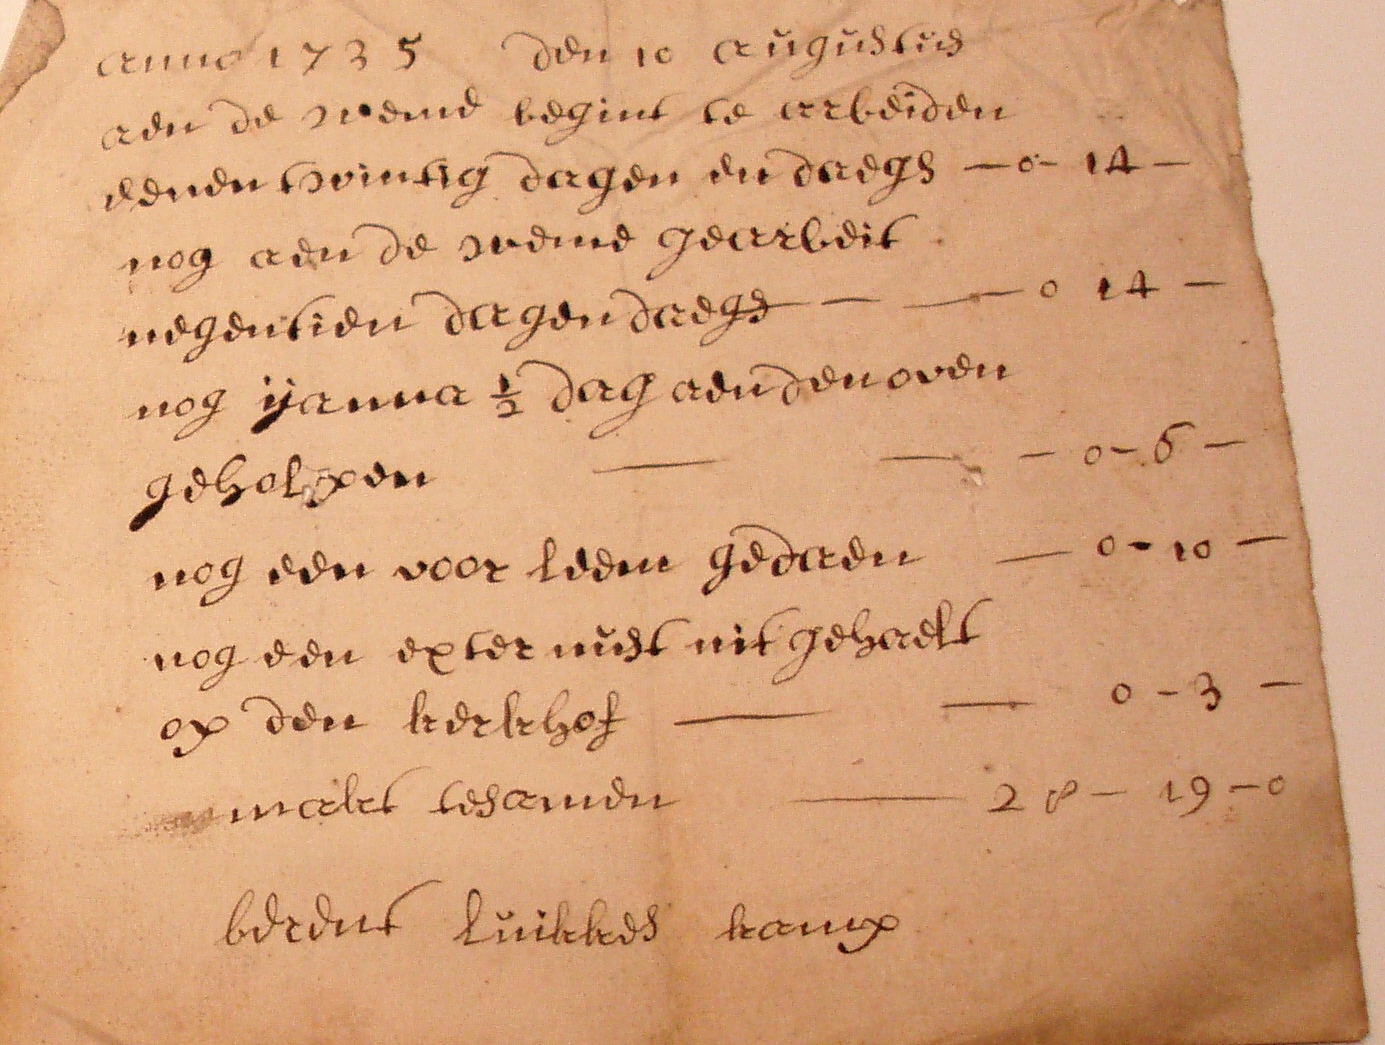 anno 1735 den 10 augustus
aen de weme begint te arbeiden
eenentwintig dagen en daegs – 0 – 14 –
nog aen de weme gearbeit
negentien dagen daegs – – 0 14 –
nog ijanna ½ dag aen den oven
geholpen — — – 0 – 6 –
nog een voor leem gedaen — 0 – 10 –
nog een exter nust uit gehaelt
op den kerkhof — — 0 – 3 –
makt tesamen — 28 – 19 – 0
berent luikkes kamp